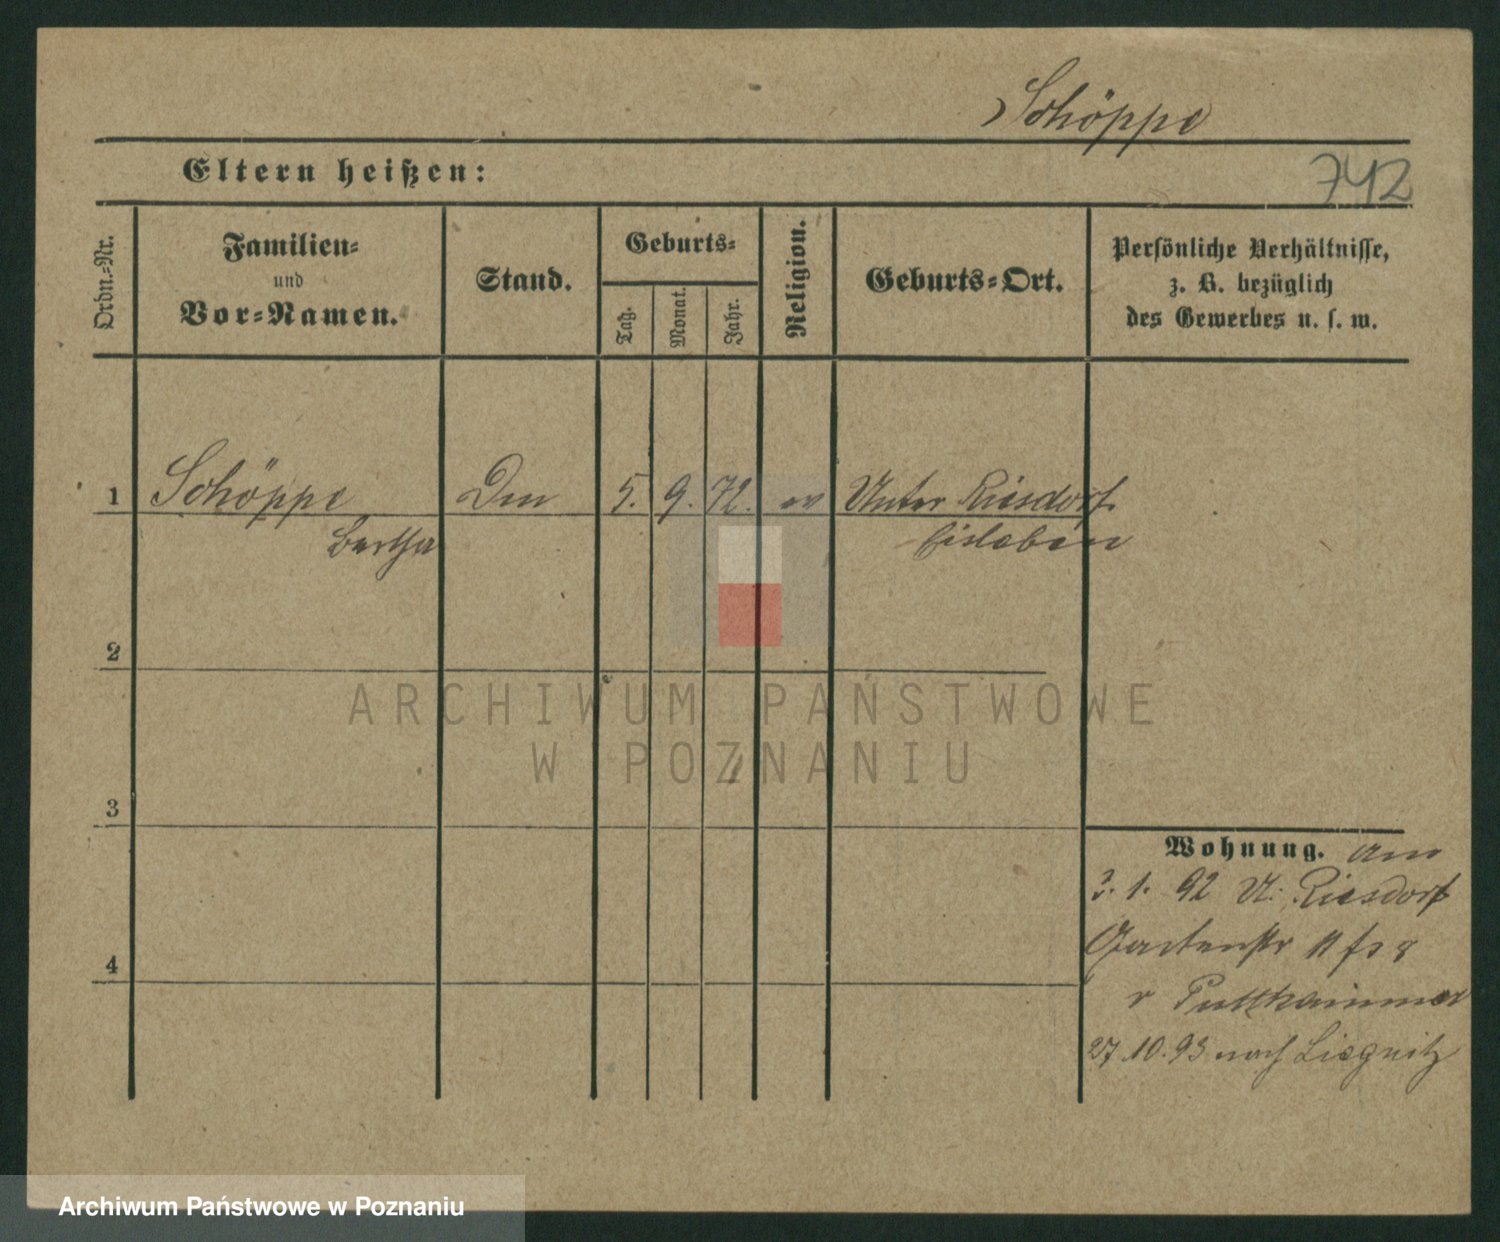 Schöppe
Eltern heißen:
742
Ordn.-Nr.
Familien-
und
Vor-Namen.
Stand.
Geburts-
Tag.
Monat.
Jahr.
Religion.
Geburts-Ort.
Persönliche Verhältnisse,
z. B. bezüglich
des Gewerbes u. s. w.
1 Schöppe 5. 9. 72. ev Unter Riesdorf
Bertha Eisleben
2
ARCHIWUM PAŃSTWOWE
W POZNANIU
3
Wohnung. am
3. 1. 92 U. Riesdorf
Gartenstr 11
4
v Puttkammer
27.10.93 nach Liegnitz
Archiwum Państwowe w Poznaniu